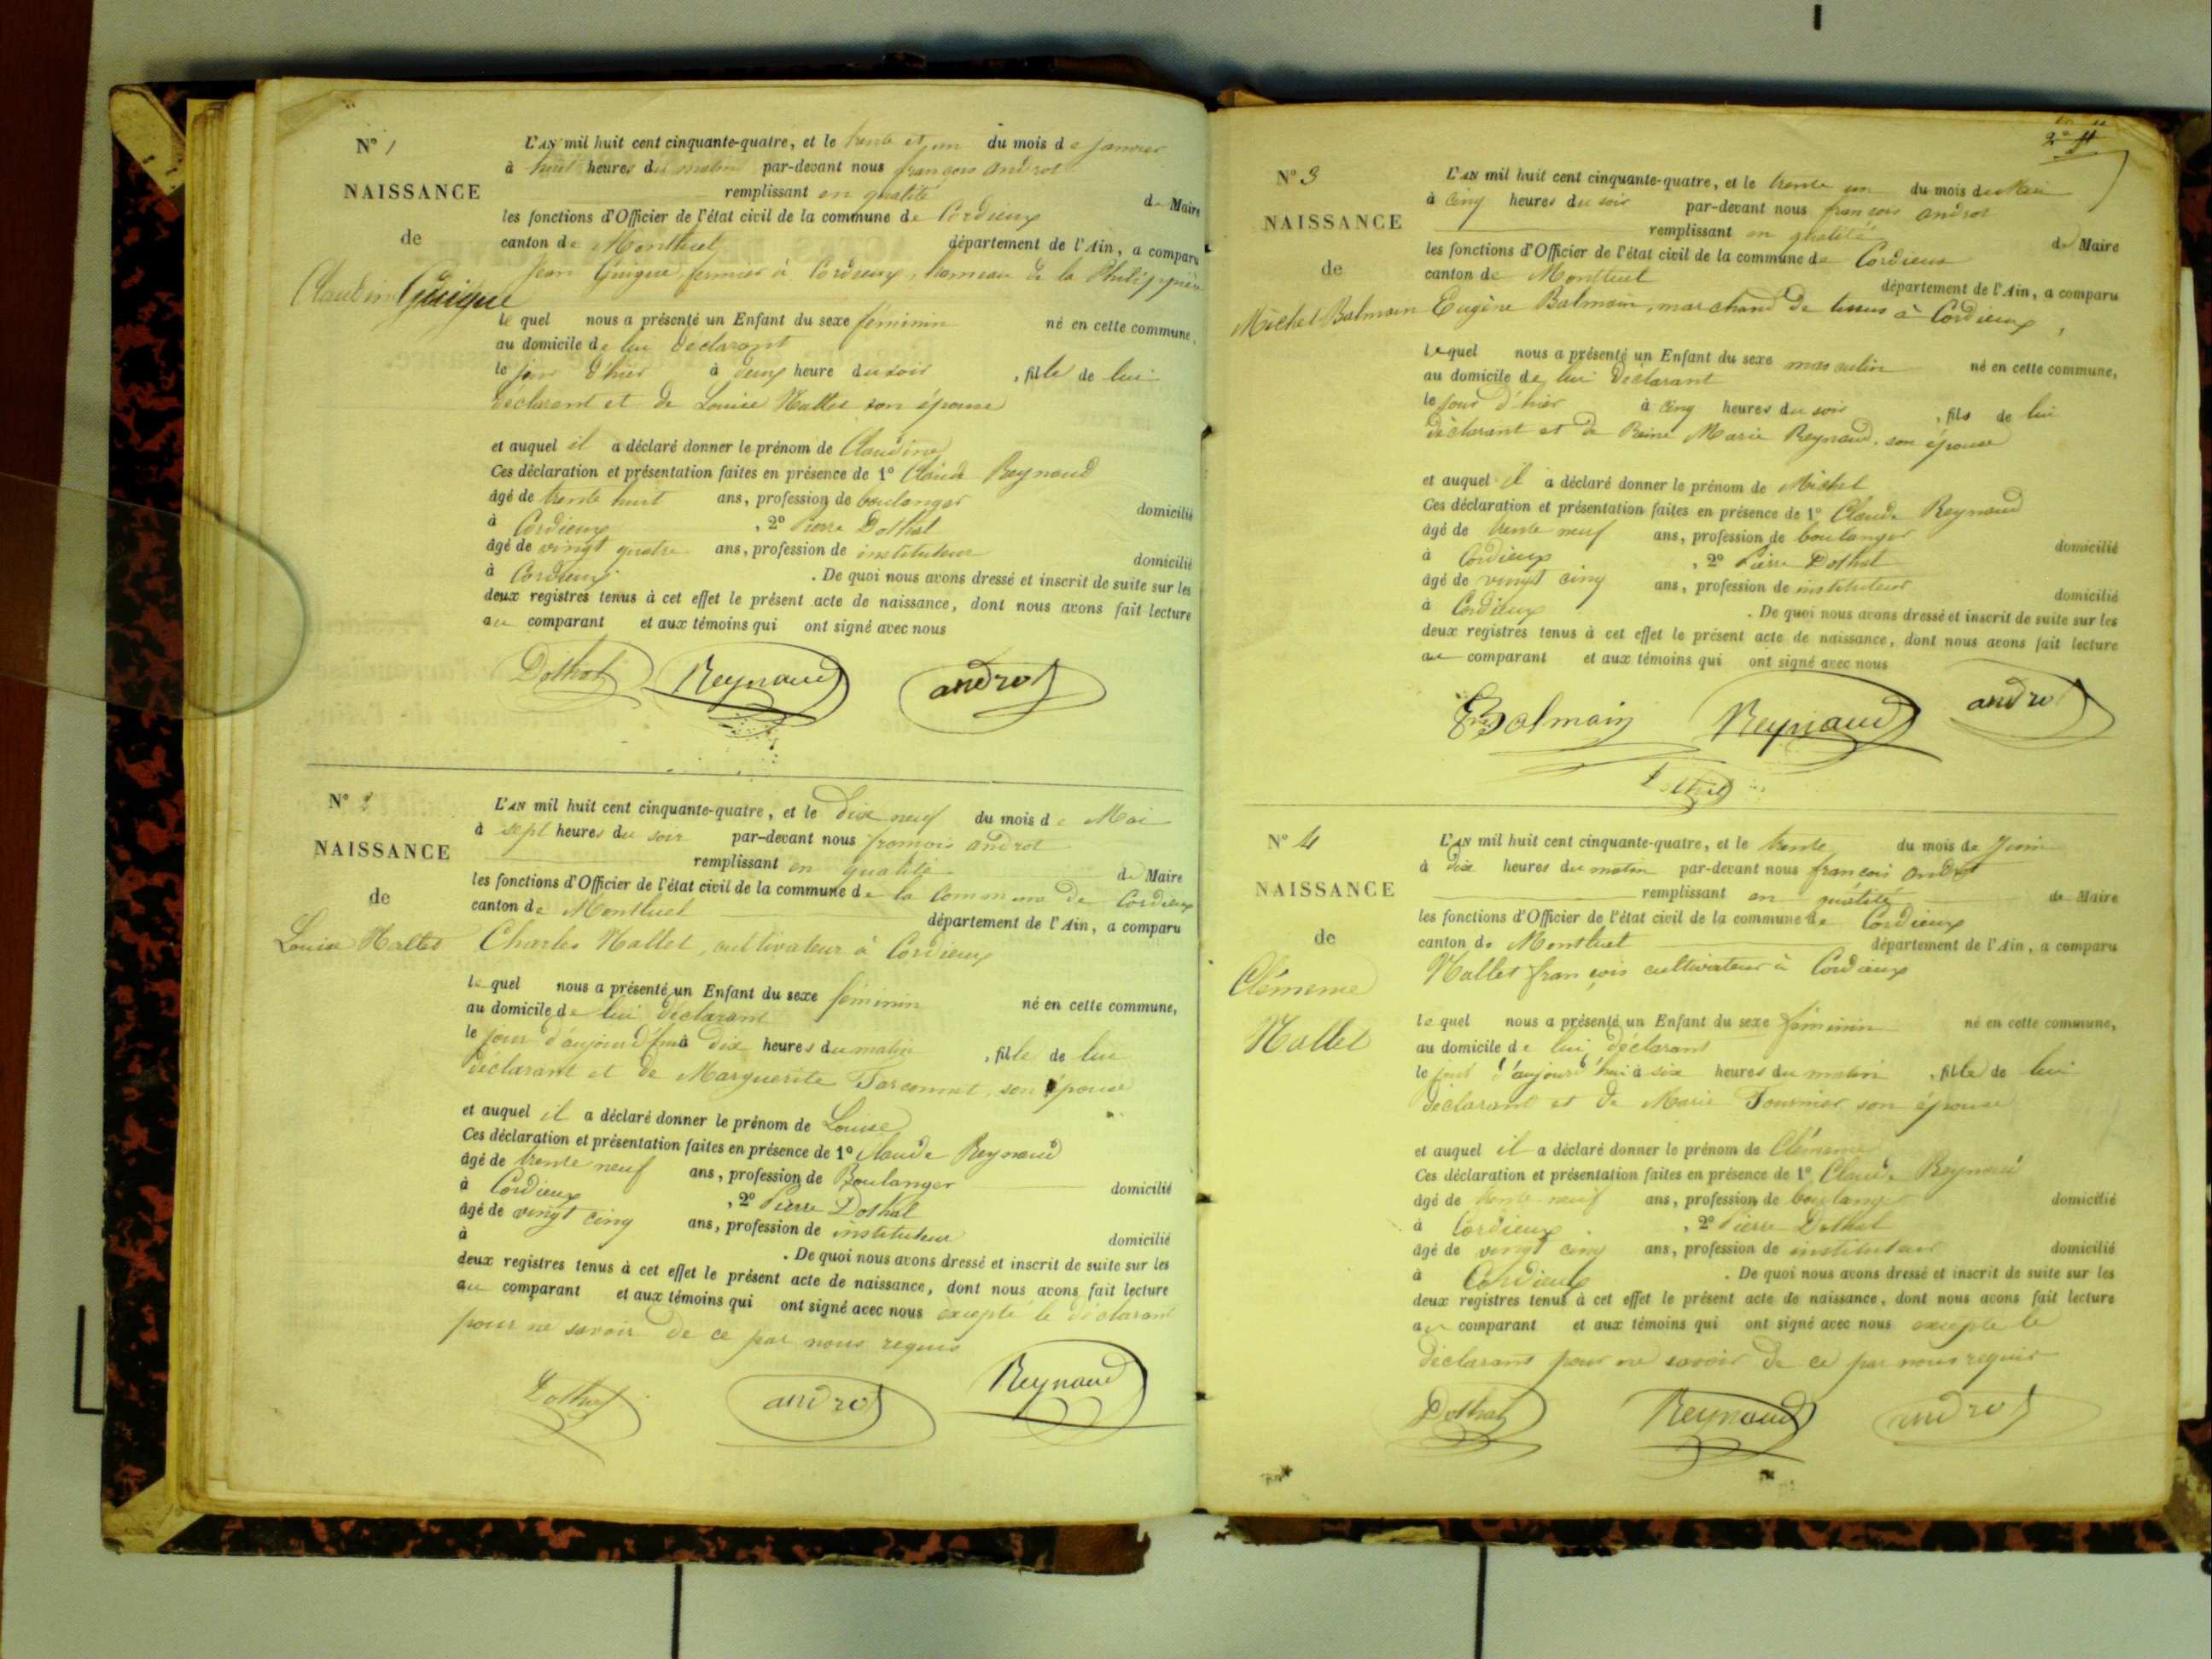 N° 1
NAISSANCE
de
Claudine Guigue
L'AN mil huit cent cinquante-quatre, et le trente et un du mois de janvier
à huit heures du matin par-devant nous françois androt
remplissant en qualité de Maire
les fonctions d'Officier de l'état civil de la commune de Cordieux
canton de Montluel département de l'Ain, a comparu
Jean Guigue, fermier à Cordieux, hameau de la
le quel nous a présenté un Enfant du sexe féminin né en cette commune,
au domicile de lui déclarant
le jour d'hier à deux heure du soir , fille de lui
déclarant et de Louise Nallet son épouse
et auquel il a déclaré donner le prénom de Claudine
Ces déclaration et présentation faites en présence de 1° Claude Reynaud
âgé de trente huit ans, profession de boulanger domicilié
à Cordieux , 2° Pierre Dothal
âgé de vingt quatre ans, profession de instituteur domicilié
à Cordieux . De quoi nous avons dressé et inscrit de suite sur les
deux registres tenus à cet effet le présent acte de naissance, dont nous avons fait lecture
au comparant et aux témoins qui ont signé avec nous
Dothal Reynaud androt
N° 2
NAISSANCE
de
Louise Nallet
L'AN mil huit cent cinquante-quatre, et le dix neuf du mois de Mai
à sept heures du soir par-devant nous françois androt
remplissant en qualité de Maire
les fonctions d'Officier de l'état civil de la commune de la commune de Cordieux
canton de Montluel département de l'Ain, a comparu
Charles Nallet, cultivateur à Cordieux
le quel nous a présenté un Enfant du sexe féminin né en cette commune,
au domicile de lui déclarant
le jour d'aujourd'hui à dix heures du matin , fille de lui
déclarant et de Marguerite son épouse
et auquel il a déclaré donner le prénom de Louise
Ces déclaration et présentation faites en présence de 1° Claude Reynaud
âgé de trente neuf ans, profession de Boulanger domicilié
à Cordieux , 2° Pierre Dothal
âgé de vingt cinq ans, profession de instituteur domicilié
à . De quoi nous avons dressé et inscrit de suite sur les
deux registres tenus à cet effet le présent acte de naissance, dont nous avons fait lecture
au comparant et aux témoins qui ont signé avec nous excepté le déclarant
pour ne savoir de ce par nous requis
Dothal androt Reynaud
N° 3
NAISSANCE
de
Michel Balmain
L'AN mil huit cent cinquante-quatre, et le trente un du mois de Mai
à cinq heures du soir par-devant nous françois androt
remplissant en qualité de Maire
les fonctions d'Officier de l'état civil de la commune de Cordieux
canton de Montluel département de l'Ain, a comparu
Eugène Balmain, marchand de tissus à Cordieux,
lequel nous a présenté un Enfant du sexe masculin né en cette commune,
au domicile de lui déclarant
le jour d'hier à cinq heures du soir , fils de lui
déclarant et de Reine Marie Reynaud, son épouse
et auquel il a déclaré donner le prénom de Michel
Ces déclaration et présentation faites en présence de 1° Claude Reynaud
âgé de trente neuf ans, profession de boulanger domicilié
à Cordieux , 2° Pierre Dothal
âgé de vingt cinq ans, profession de instituteur domicilié
à Cordieux . De quoi nous avons dressé et inscrit de suite sur les
deux registres tenus à cet effet le présent acte de naissance, dont nous avons fait lecture
au comparant et aux témoins qui ont signé avec nous
EBalmain Reynaud androt
Dothal
N° 4
NAISSANCE
de
Clémence
Nallet
L'AN mil huit cent cinquante-quatre, et le trente du mois de Juin
à dix heures du matin par-devant nous françois androt
remplissant en qualité de Maire
les fonctions d'Officier de l'état civil de la commune de Cordieux
canton de Montluel département de l'Ain, a comparu
Nallet françois cultivateur à Cordieux
le quel nous a présenté un Enfant du sexe féminin né en cette commune,
au domicile de lui déclarant
le jour d'aujourd'hui à six heures du matin , fille de lui
déclarant et de Marie Fournier son épouse
et auquel il a déclaré donner le prénom de Clémence
Ces déclaration et présentation faites en présence de 1° Claude Reynaud
âgé de trente neuf ans, profession de boulanger domicilié
à Cordieux , 2° Pierre Dothal
âgé de vingt cinq ans, profession de instituteur domicilié
à Cordieux . De quoi nous avons dressé et inscrit de suite sur les
deux registres tenus à cet effet le présent acte de naissance, dont nous avons fait lecture
au comparant et aux témoins qui ont signé avec nous excepté le
déclarant pour ne savoir de ce par nous requis
Dothal Reynaud androt